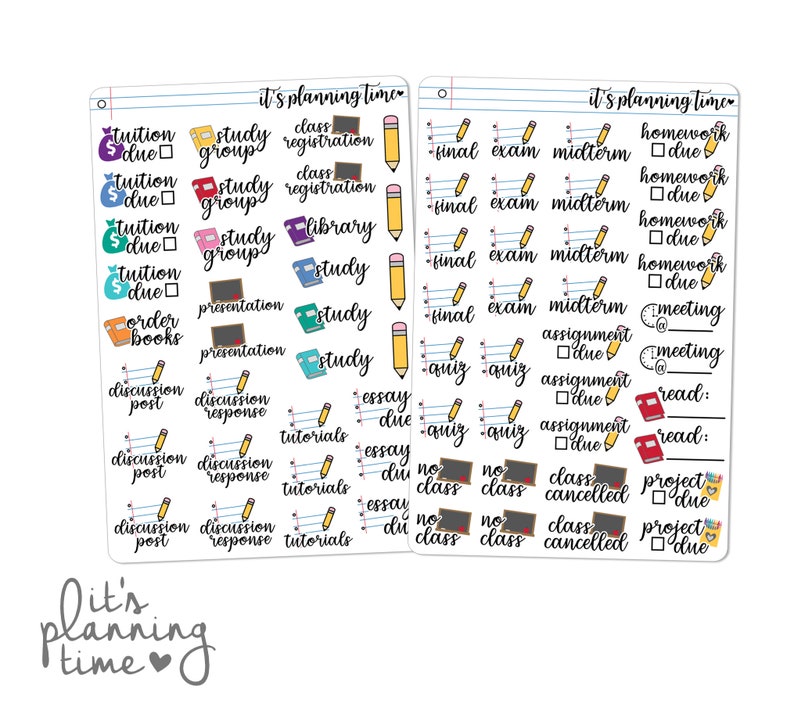 it's planning time
tuition
due
study
group
class
registration
tuition
due
study
group
class
registration
tuition
due
study
group
library
tuition
due
presentation
study
order
books
presentation
study
study
discussion
post
discussion
response
tutorials
essay
due
discussion
post
discussion
response
tutorials
essay
due
discussion
post
discussion
response
tutorials
essay
due
it's planning time
final
exam
midterm
homework
due
final
exam
midterm
homework
due
final
exam
midterm
homework
due
final
exam
midterm
homework
due
quiz
quiz
assignment
due
meeting
@
assignment
due
meeting
@
quiz
quiz
assignment
due
read:
read:
no
class
no
class
class
cancelled
project
due
no
class
no
class
class
cancelled
project
due
it's
planning
time